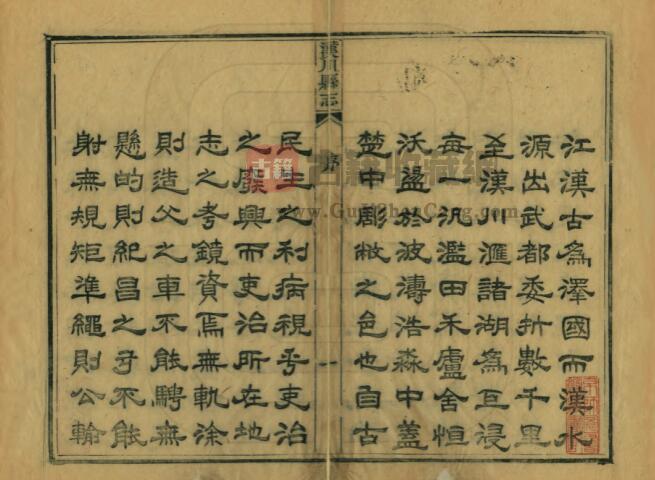 江漢古為澤國而漢水
源出武都委折數千里
至漢川滙諸湖為巨浸
每一汎濫田禾廬舍恒
沃盪於波濤浩淼中蓋
楚中彫敝之邑也自古
漢川縣志
序
一
民生之利病視乎吏治
之廢興而吏治所在地
志之考鏡資焉無軌涂
則造父之車不能騁無
懸的則紀昌之弓不能
射無規矩準繩則公輸
古籍
www.GuJiShuCang.com